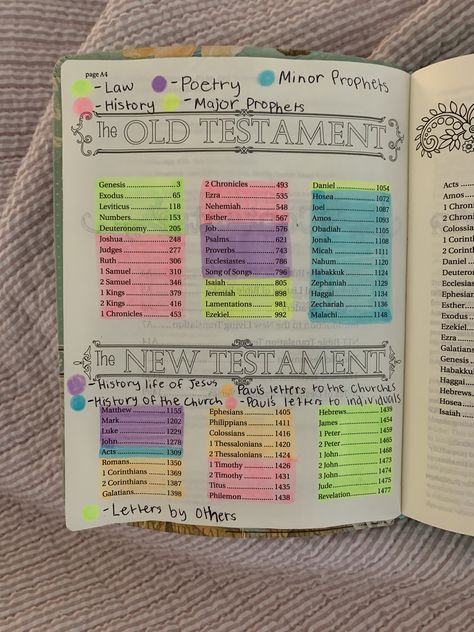 page A4
- Law - Poetry - Minor Prophets
- History - Major Prophets
The OLD TESTAMENT
Genesis 3
Exodus 65
Leviticus 118
Numbers 153
Deuteronomy 205
Joshua 248
Judges 277
Ruth 306
1 Samuel 310
2 Samuel 346
1 Kings 379
2 Kings 416
1 Chronicles 453
2 Chronicles 493
Ezra 535
Nehemiah 548
Esther 567
Job 576
Psalms 621
Proverbs 743
Ecclesiastes 786
Song of Songs 796
Isaiah 805
Jeremiah 898
Lamentations 981
Ezekiel 992
Daniel 1054
Hosea 1072
Joel 1087
Amos 1093
Obadiah 1105
Jonah 1108
Micah 1111
Nahum 1120
Habakkuk 1124
Zephaniah 1129
Haggai 1134
Zechariah 1136
Malachi 1148
The NEW TESTAMENT
- History life of Jesus - Paul's letters to the Churches
- History of the Church - Paul's letters to individuals
Matthew 1155
Mark 1202
Luke 1229
John 1278
Acts 1309
Romans 1350
1 Corinthians 1369
2 Corinthians 1387
Galatians 1398
Ephesians 1405
Philippians 1411
Colossians 1416
1 Thessalonians 1420
2 Thessalonians 1424
1 Timothy 1426
2 Timothy 1431
Titus 1435
Philemon 1438
Hebrews 1439
James 1454
1 Peter 1459
2 Peter 1465
1 John 1468
2 John 1473
3 John 1474
Jude 1475
Revelation 1477
- Letters by Others
Acts
Amos
Daniel
Esther
Exodus
Ezekiel
Ezra
Genesis
Habakkuk
Haggai
Hebrews
Hosea
Isaiah